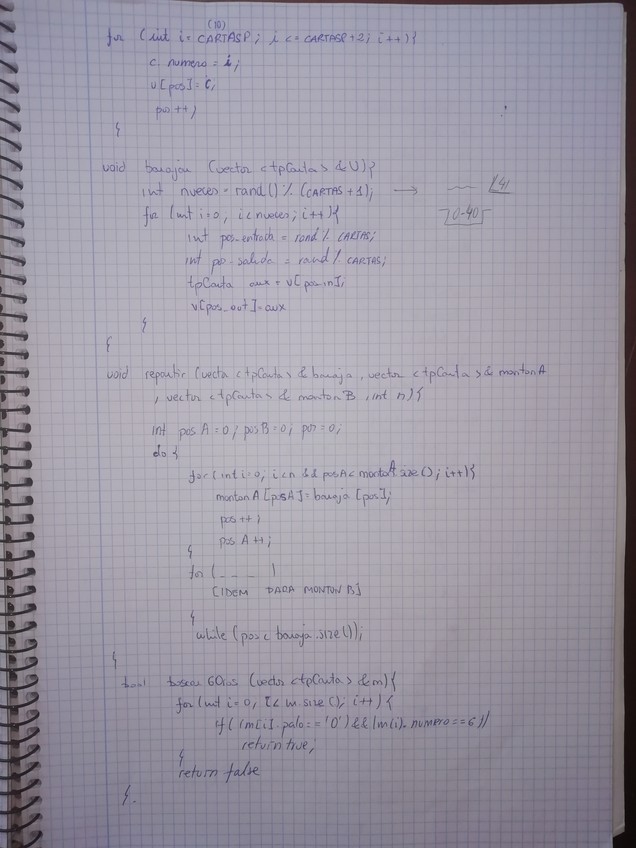 (10)
for (int i = CARTASP; i <= CARTASP+2; i++){
c. numero = i;
v[pos] = c;
pos ++;
}
void barajar (vector <tpCarta> & v){
int nueces = rand() % (CARTAS +1); → 41
0-40
for (int i=0, i< nueces; i++){
int pos_entrada = rand % CARTAS;
int pos_salida = rand % CARTAS;
tpCarta aux = v[pos_in];
v[pos_out] = aux
}
}
void repartir (vector <tpCarta> & baraja, vector <tpCarta> & montonA
, vector <tpCarta> & montonB, int n){
int pos A = 0; pos B = 0; pos = 0;
do {
for (int i=0; i<n && posA< montonA size(); i++){
montonA [posA] = baraja [pos];
pos ++;
pos A ++;
}
for ( _ _ _ )
[IDEM PARA MONTON B]
}
while (pos < baraja.size());
}
bool buscar 6Oros (vector <tpCarta> & m){
for (int i=0, i< m.size(); i++){
if ( (m[i]. palo == 'O') && (m[i]. numero == 6))
return true,
}
return false
}.